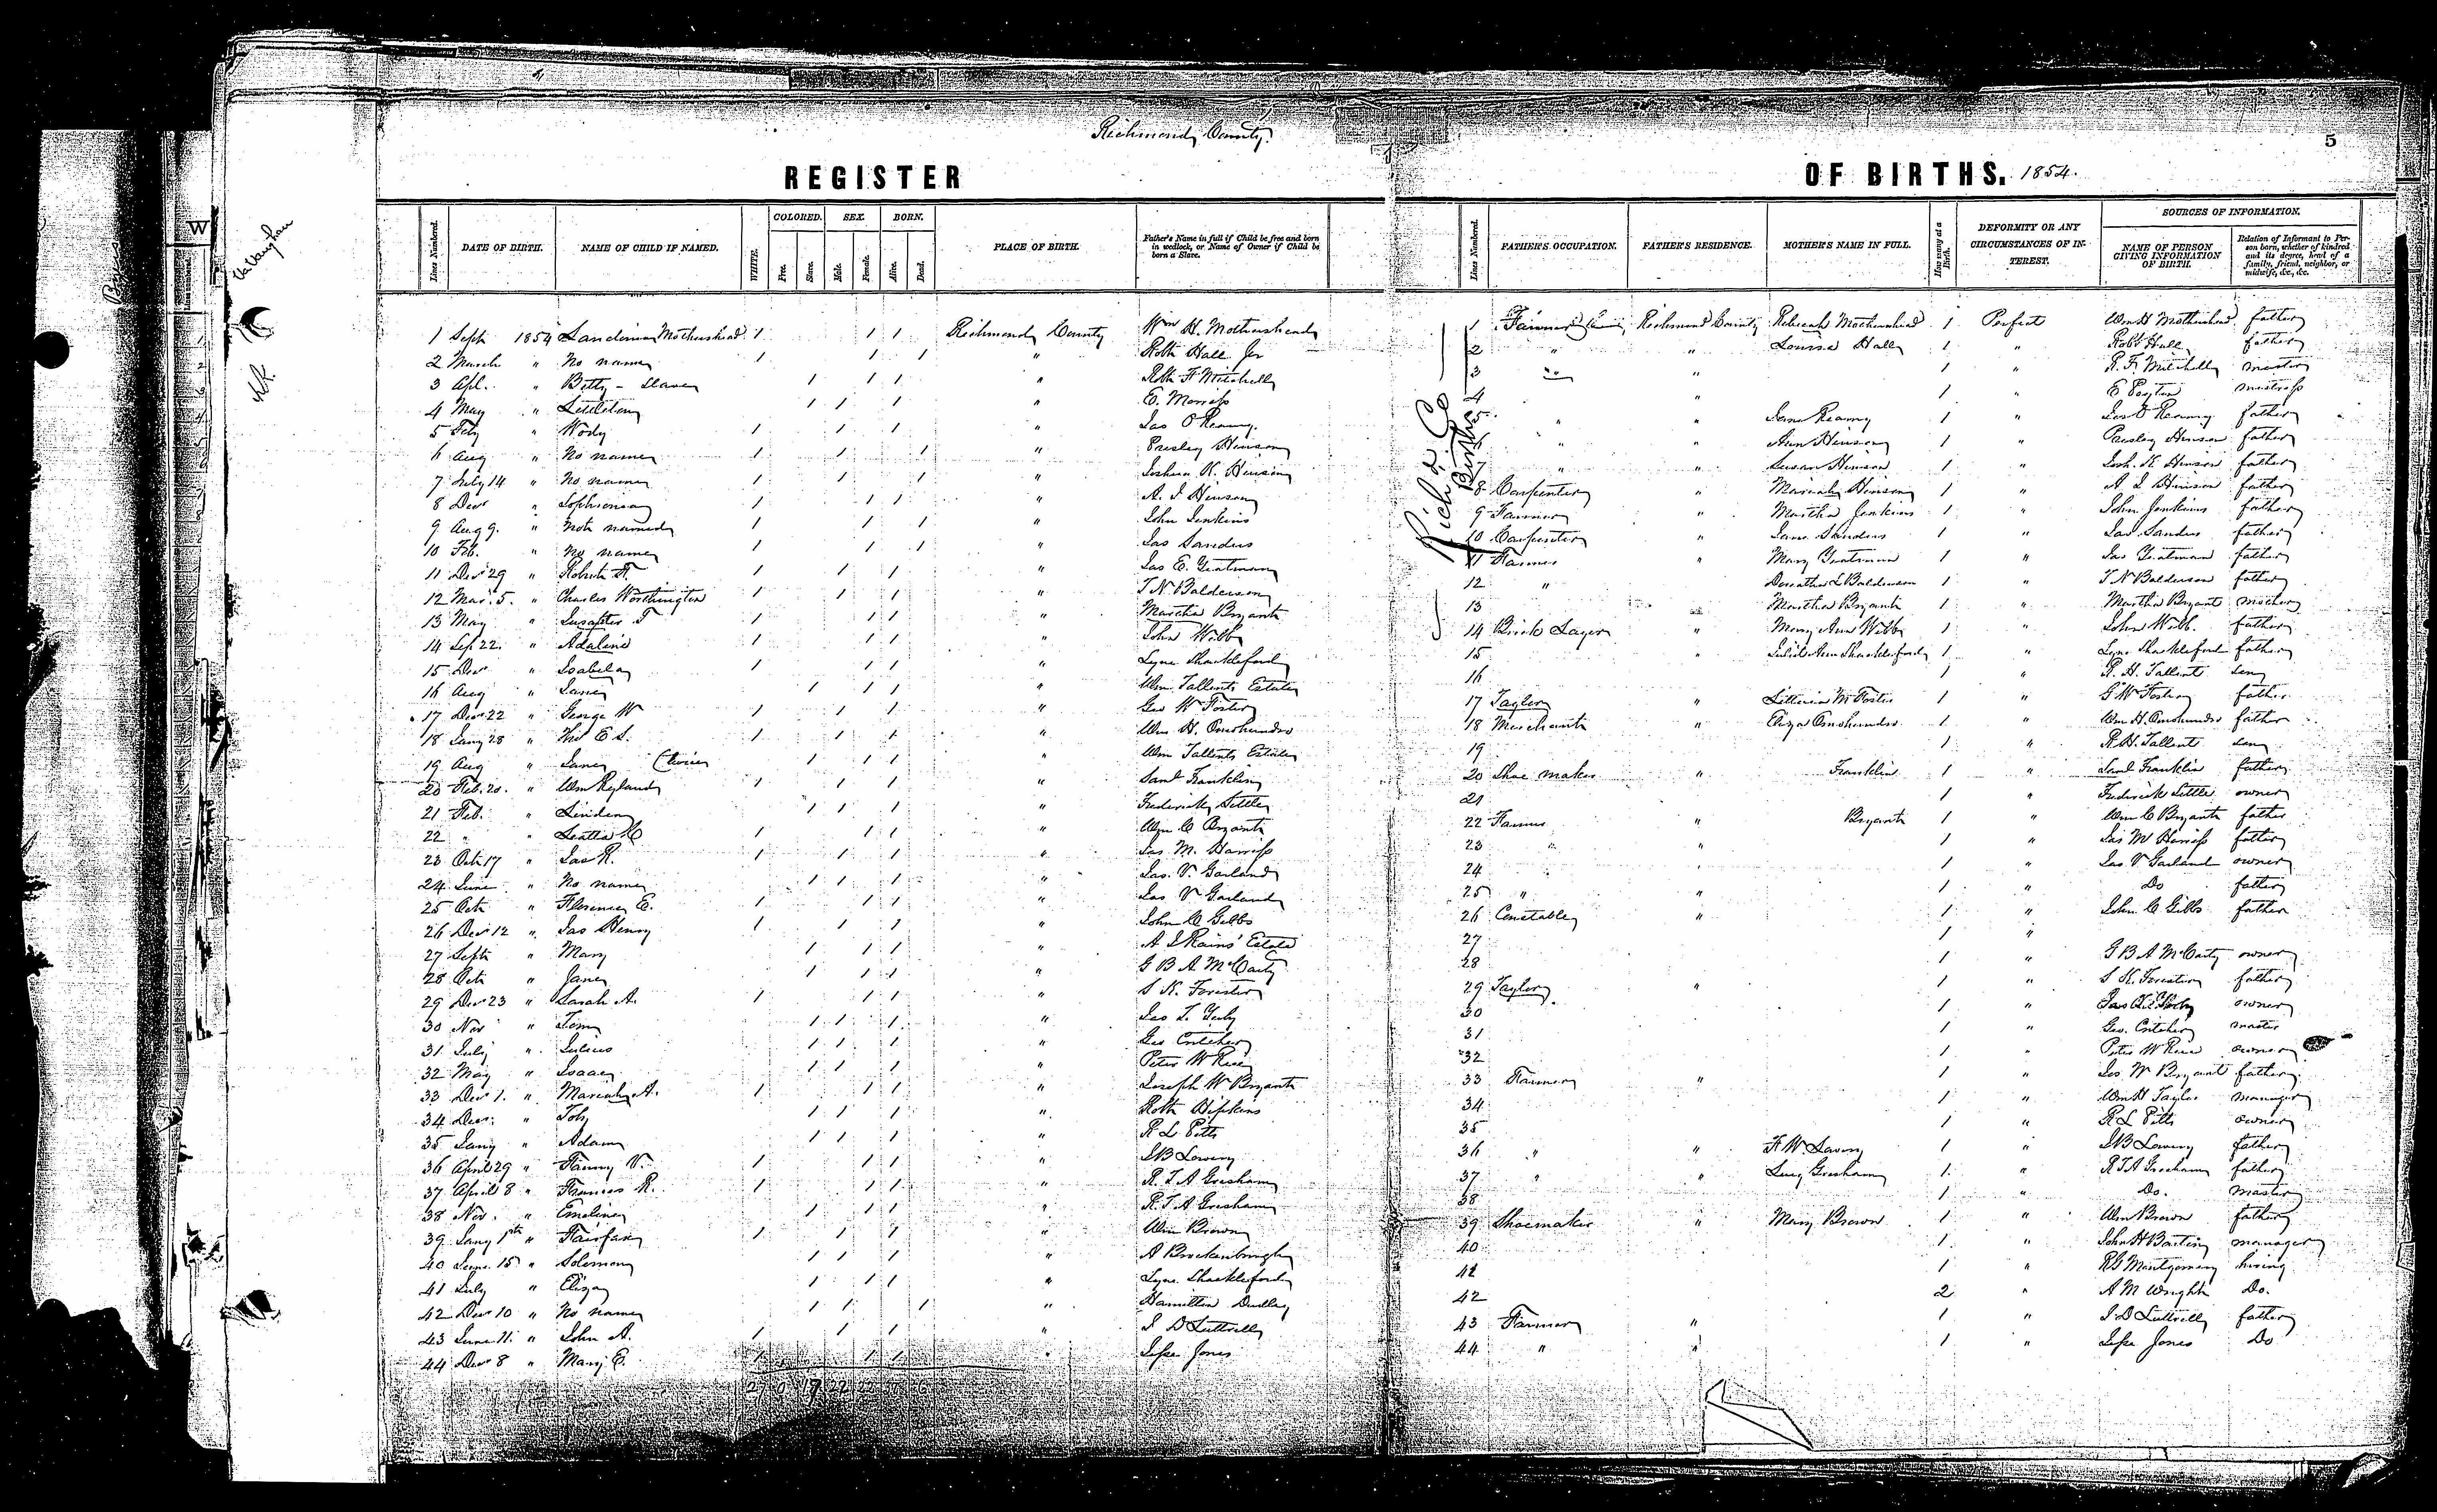 Richmond County
5
REGISTER OF BIRTHS. 1854.
Lines Numbered. DATE OF BIRTH. NAME OF CHILD IF NAMED. WHITE. COLORED. Free. Slave. SEX. Male. Female. BORN. Alive. Dead. PLACE OF BIRTH. Father's Name in full if Child be free and born in wedlock, or Name of Owner if Child be born a Slave. Lines Numbered. FATHER'S OCCUPATION. FATHER'S RESIDENCE. MOTHER'S NAME IN FULL. How many at a Birth. DEFORMITY OR ANY CIRCUMSTANCES OF INTEREST. SOURCES OF INFORMATION. NAME OF PERSON GIVING INFORMATION OF BIRTH. Relation of Informant to Person born, whether of kindred and its degree, head of a family, friend, neighbor, or midwife, &c., &c.
1 Sept 1854 Mothershead 1 1 1 Richmond County Wm H. Mothershead 1 Farmer Richmond County Rebecah Mothershead 1 Perfect Wm H Mothershead father
2 March " No name 1 1 1 " Robt Hall Jr 2 " " Louisa Hall 1 " Robt Hall father
3 Apl. " Betty - Slave 1 1 1 " Robt F Mitchell 3 " " 1 " R. F. Mitchell master
4 May " Littleton 1 1 1 " E. 4 " 1 " E mistress
5 " Wody 1 1 1 " Jas O Reamy. 5 " " Jane Reamy 1 " Jas O Reamy father
6 Aug " No name 1 1 1 " Presley Hinson 6 " " Ann Hinson 1 " Presley Hinson father
7 July 14 " No name 1 1 1 " Joshua K. Hinson 7 " " Susan Hinson 1 " Josh. K Hinson father
8 Decr " Sophronia 1 1 1 " A. J Hinson 8 Carpenter " Mariah Hinson 1 " Hinson father
9 Aug 9. " not named 1 1 1 " John Jenkins 9 Farmer " Martha Jenkins 1 " John Jenkins father
10 Feb. " No name 1 1 1 " Jas Sanders 10 Carpenter " Jane Sanders 1 " Jas Sanders father
11 Decr 29 " 1 1 1 " Jas E. Yeatman 11 Farmer " Mary Yeatman 1 " Jas Yeatman father
12 Mar. 5. " Charles Worthington 1 1 1 " T N Balderson 12 " Balderson 1 " T N Balderson father
13 May " 1 1 1 " Martha Bryant 13 " Martha Bryant 1 " Martha Bryant mother
14 Sep 22. " Adaline 1 1 1 " John Webb 14 Brick Layer " Mary Ann Webb 1 " John Webb. father
15 Decr " Isabela 1 1 1 " Lyne Shackleford 15 " Ann Shackleford 1 " Lyne Shackleford father
16 Aug " Jane 1 1 1 " Wm Tallents Estate 16 1 " R. H. Tallent
17 Decr 22 " George W 1 1 1 " Geo W Foster 17 Taylor " M Foster 1 " G W Foster father
18 Jany 28 " Thos E S. 1 1 1 " Wm H. Omohundro 18 Merchant " Eliza Omohundro 1 " Wm H. Omohundro father
19 Aug " Jane (twice) 1 1 1 " Wm Tallents Estate 19 1 " R H. Tallent
20 Feb. 20. " Wm Ryland 1 1 1 " Saml Franklin 20 Shoe maker " Franklin 1 " Saml Franklin father
21 Feb. " 1 1 1 " Frederick Settle 21 1 " Frederick Settle owner
22 " " 1 1 1 " Wm C Bryant 22 Farmer " Bryant 1 " Wm C Bryant father
23 Oct 17 " Jas R. 1 1 1 " Jas M. Harriss 23 " " 1 " Jas M Harriss father
24 June " No name 1 1 1 " Jas. V. Garland 24 1 " Jas V Garland owner
25 Oct " Florence E. 1 1 1 " Jas V Garland 25 " " 1 " Do father
26 Decr 12 " Jas Henry 1 1 1 " John C Gibbs 26 Constable " 1 " John C Gibbs father
27 Sept " Mary 1 1 1 " Rains' Estate 27 1 "
28 Oct " Jane 1 1 1 " G B A McCarty 28 1 " G B A McCarty owner
29 Decr 23 " Sarah A. 1 1 1 " S K. Forester 29 Taylor " 1 " S K. Forester father
30 Nov " Tom 1 1 1 " Jas 30 1 " Jas owner
31 July " Julius 1 1 1 " Geo Critcher 31 1 " Geo. Critcher master
32 May " Isaac 1 1 1 " Peter W Rice 32 1 " Peter W Rice owner
33 Decr 1. " Mariah A. 1 1 1 " Joseph W Bryant 33 Farmer " 1 " Jos W Bryant father
34 Decr. " Toby 1 1 1 " Robt Hipkins 34 1 " Wm H Taylor manager
35 Jany " Adam 1 1 1 " R L Pitts 35 1 " R L Pitts owner
36 April 29 " Fanny V. 1 1 1 " Lowery 36 " " F. W. Lowery 1 " Lowery father
37 April 8 " Frances R. 1 1 1 " R. T. A Gresham 37 " " Lucy Gresham 1 " R T A Gresham father
38 Nov. " Emeline 1 1 1 " R. T. A Gresham 38 1 " Do. master
39 Jany 1st " Fairfax 1 1 1 " Wm Brown 39 Shoemaker " Mary Brown 1 " Wm Brown father
40 June 15 " Solomon 1 1 1 " A Brockenbrough 40 1 " John H manager
41 July " Eliza 1 1 1 " Lyne Shackleford 41 1 " Montgomery hiring
42 Decr 10 " No name 1 1 1 " Hamilton Dudley 42 2 " A M Wright Do.
43 June 11. " John A. 1 1 1 " D Luttrell 43 Farmer " 1 " D Luttrell father
44 Decr 8 " Mary E. 1 1 1 " Jones 44 " " 1 " Jones Do
Births